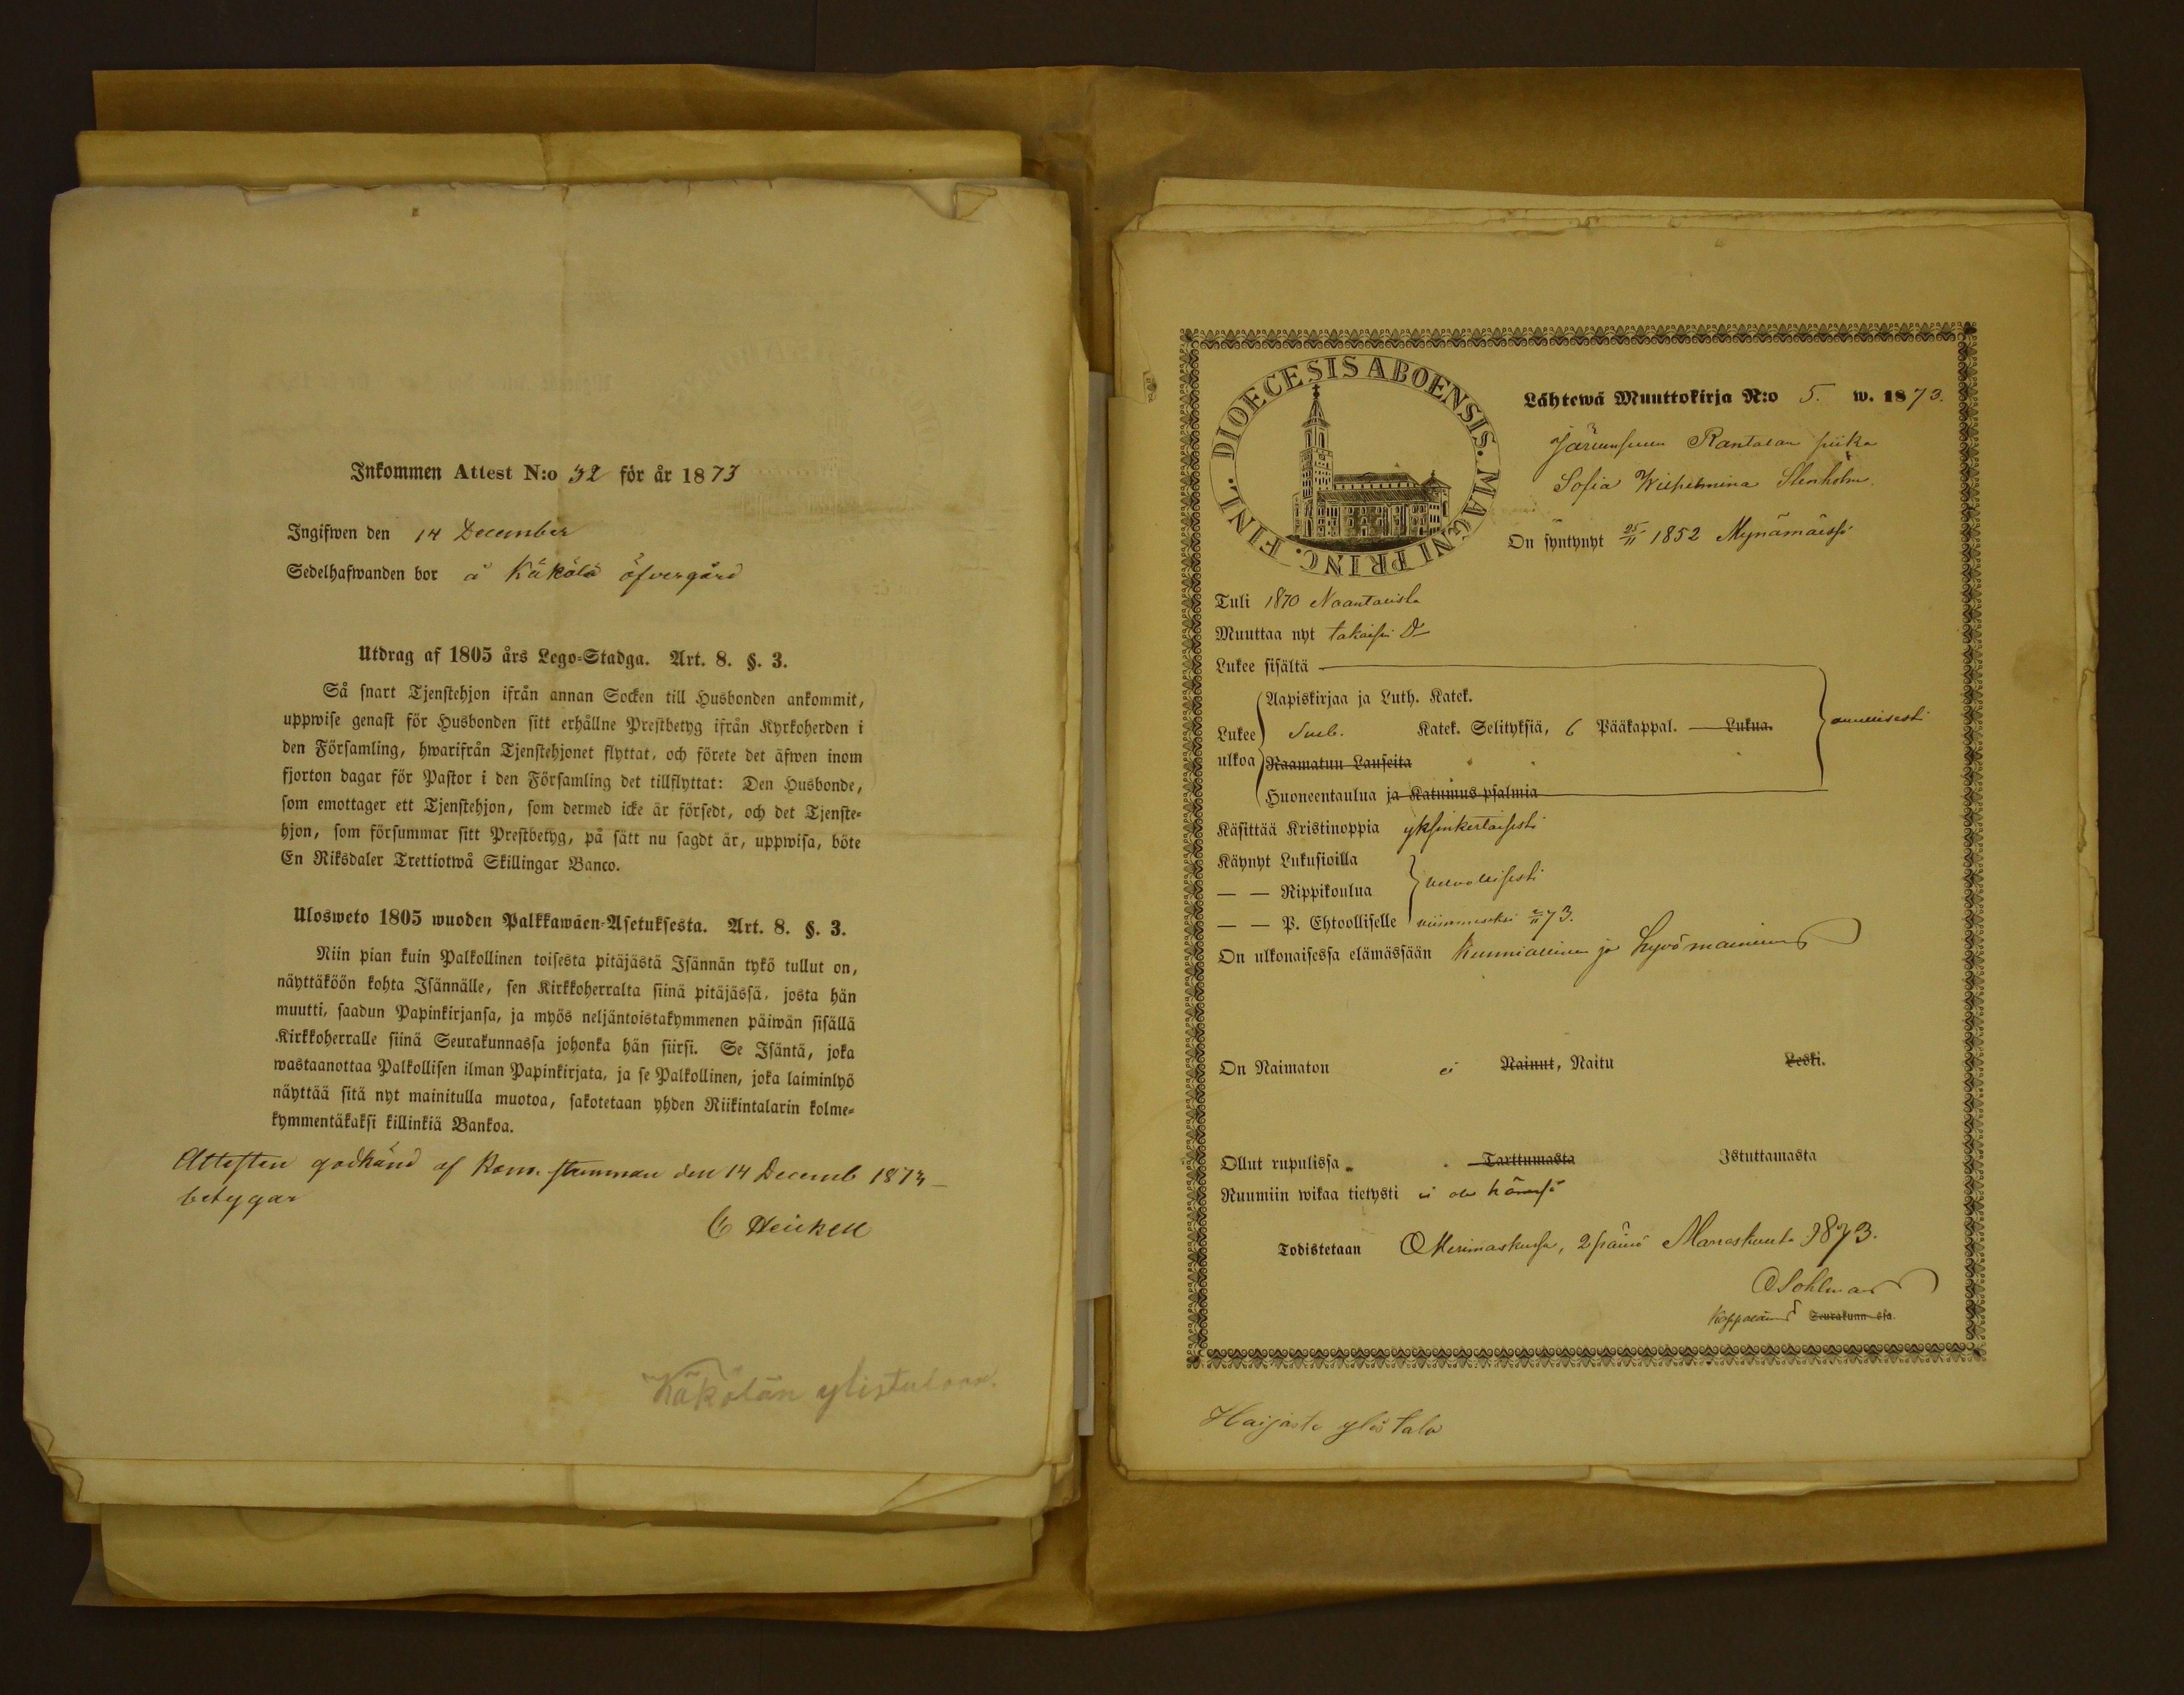 Inkommen Attest N:o 32 för år 1873
Ingifwen den 14 December
Sedelhafwanden bor å Käkölä öfvergård
Utdrag af 1805 års Lego-Stadga. Art. 8. §. 3.
Så snart Tjenstehjon ifrån annan Socken till Husbonden ankommit,
uppwise genast för Husbonden sitt erhållne Prestbetyg ifrån Kyrkoherden i
den Församling, hwarifrån Tjenstehjonet flyttat, och förete det äfwen inom
fjorton dagar för Pastor i den Församling det tillflyttat: Den Husbonde,
som emottager ett Tjenstehjon, som dermed icke är försedt, och det Tjenste-
hjon, som försummar sitt Prestbetyg, på sätt nu sagdt är, uppwisa, böte
En Riksdaler Trettiotwå Skillingar Banco.
Ulosweto 1805 wuoden Palkkawäen-Asetuksesta. Art. 8. §. 3.
Niin pian kuin Palkollinen toisesta pitäjästä Isännän tykö tullut on,
näyttäköön kohta Isännälle, sen Kirkkoherralta siinä pitäjässä, josta hän
muutti, saadun Papinkirjansa, ja myös neljäntoistakymmenen päiwän sisällä
Kirkkoherralle siinä Seurakunnassa johonka hän siirsi. Se Isäntä, joka
wastaanottaa Palkollisen ilman Papinkirjata, ja se Palkollinen, joka laiminlyö
näyttää sitä nyt mainitulla muotoa, sakotetaan yhden Riikintalarin kolme-
kymmentäkaksi killinkiä Bankoa.
Attesten godkänd af Kom. stämman den 14 Decemb 1873
betygar
C Heickell
Käkölän ylistaloon.
DIOECESIS ABOENSIS. MAGNI PRINC. FINL.
Lähtewä Muuttokirja N:o 5. w. 1873.
Rantalan piika
Sofia Wilhelmina Stenholm
On syntynyt 25/11 1852 Mynämäessä
Tuli 1870 Naantalista
Muuttaa nyt takaisin
Lukee sisältä
Aapiskirjaa ja Luth. Katek.
Lukee Katek. Selityksiä, 6 Pääkappal. Lukua.
ulkoa Raamatun Lauseita
Huoneentaulua ja Katumus psalmia
Käsittää Kristinoppia yksinkertaisesti
Käynyt Lukusioilla
— — Rippikoulua
— — P. Ehtoolliselle viimmeseksi 2/11 73.
On ulkonaisessa elämässään Kunniallinen ja hyvämaininen
On Naimaton ei Nainut, Naitu Leski.
Ollut rupulissa Tarttumasta Istuttamasta
Ruumiin wikaa tietysti ei ole hänessä
Todistetaan Merimaskussa, 2 päivä Marraskuuta 1873.
O Sohlman
Kappalainen Seurakunnassa.
Haijaste ylis talo